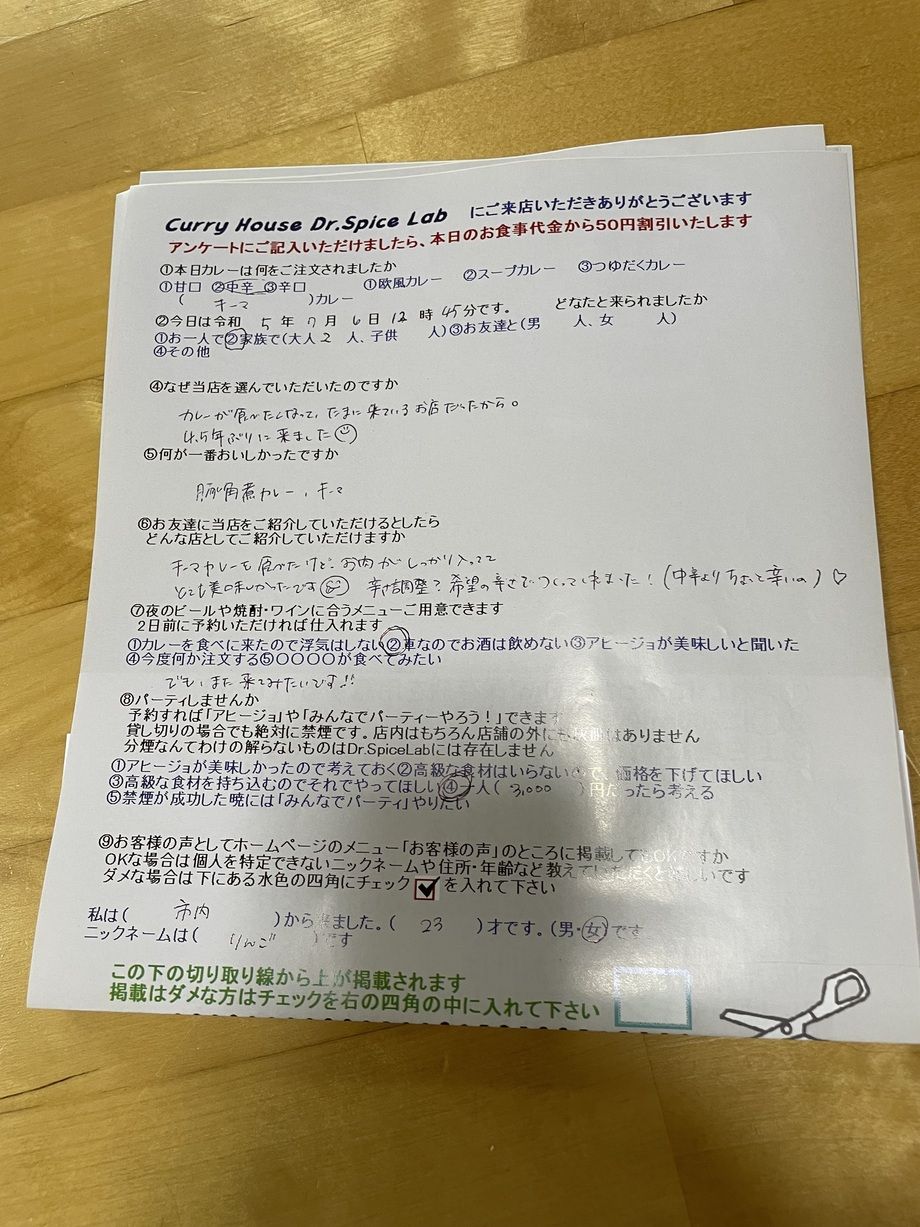 Curry House Dr.Spice Lab にご来店いただきありがとうございます
アンケートにご記入いただけましたら、本日のお食事代金から50円割引いたします
①本日カレーは何をご注文されましたか
①甘口 ②中辛 ③辛口 ①欧風カレー ②スープカレー ③つゆだくカレー
( キーマ )カレー
②今日は令和 5 年 7 月 6 日 12 時 45分です。 どなたと来られましたか
①お一人で②家族で(大人 2 人、子供 人)③お友達と(男 人、女 人)
④その他
④なぜ当店を選んでいただいたのですか
カレーが食べたくなって、たまに来ているお店だったから。
4,5年ぶりに来ました
⑤何が一番おいしかったですか
豚角煮カレー、キーマ
⑥お友達に当店をご紹介していただけるとしたら
どんな店としてご紹介していただけますか
キーマカレーを食べたけど、お肉がしっかり入ってて
とても美味しかったです 辛さ調整?希望の辛さでつくってくれました!(中辛よりちょっと辛いの)♡
⑦夜のビールや焼酎・ワインに合うメニューご用意できます
2日前に予約いただければ仕入れます
①カレーを食べに来たので浮気はしない②車なのでお酒は飲めない③アヒージョが美味しいと聞いた
④今度何か注文する⑤〇〇〇〇が食べてみたい
でも、また来てみたいです!!
⑧パーティしませんか
予約すれば「アヒージョ」や「みんなでパーティーやろう!」できます
貸し切りの場合でも絶対に禁煙です。店内はもちろん店舗の外にも灰皿はありません
分煙なんてわけの解らないものはDr.SpiceLabには存在しません
①アヒージョが美味しかったので考えておく②高級な食材はいらないので、価格を下げてほしい
③高級な食材を持ち込むのでそれでやってほしい④一人( 3,000 )円だったら考える
⑤禁煙が成功した暁には「みんなでパーティ」やりたい
⑨お客様の声としてホームページのメニュー「お客様の声」のところに掲載してもOKですか
OKな場合は個人を特定できないニックネームや住所・年齢など教えていただくと嬉しいです
ダメな場合は下にある水色の四角にチェック を入れて下さい
私は( 市内 )から来ました。( 23 )才です。(男・女)です
ニックネームは( りんご )です
この下の切り取り線から上が掲載されます
掲載はダメな方はチェックを右の四角の中に入れて下さい